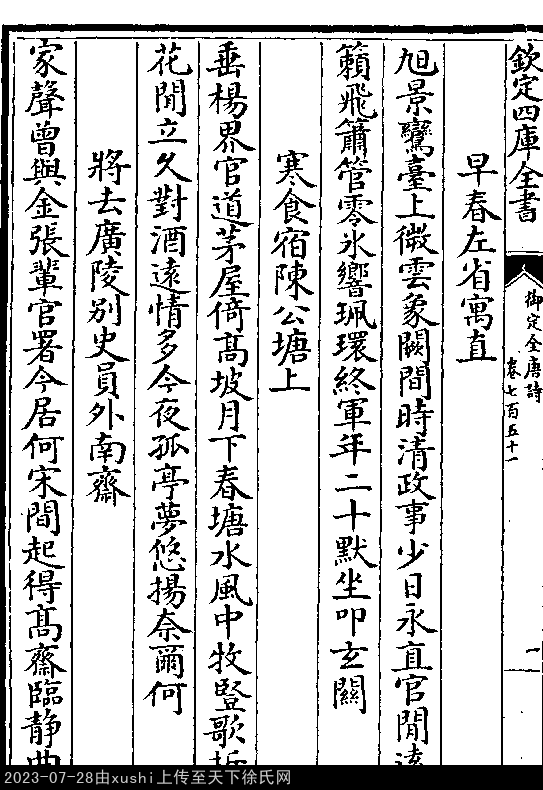 欽定四庫全書
御定全唐詩
卷七百五十一
一
早春左省寓直
旭景鸞臺上微雲象闕間時清政事少日永直官閒遠
籟飛簫管零氷響珮環終軍年二十默坐叩玄關
寒食宿陳公塘上
垂楊界官道茅屋倚高坡月下春塘水風中牧豎歌折
花閒立久對酒遠情多今夜孤亭夢悠揚奈爾何
將去廣陵别史員外南齋
家聲曾與金張輩官署今居何宋間起得髙齋臨静曲
2023-07-28由xushi上传至天下徐氏网